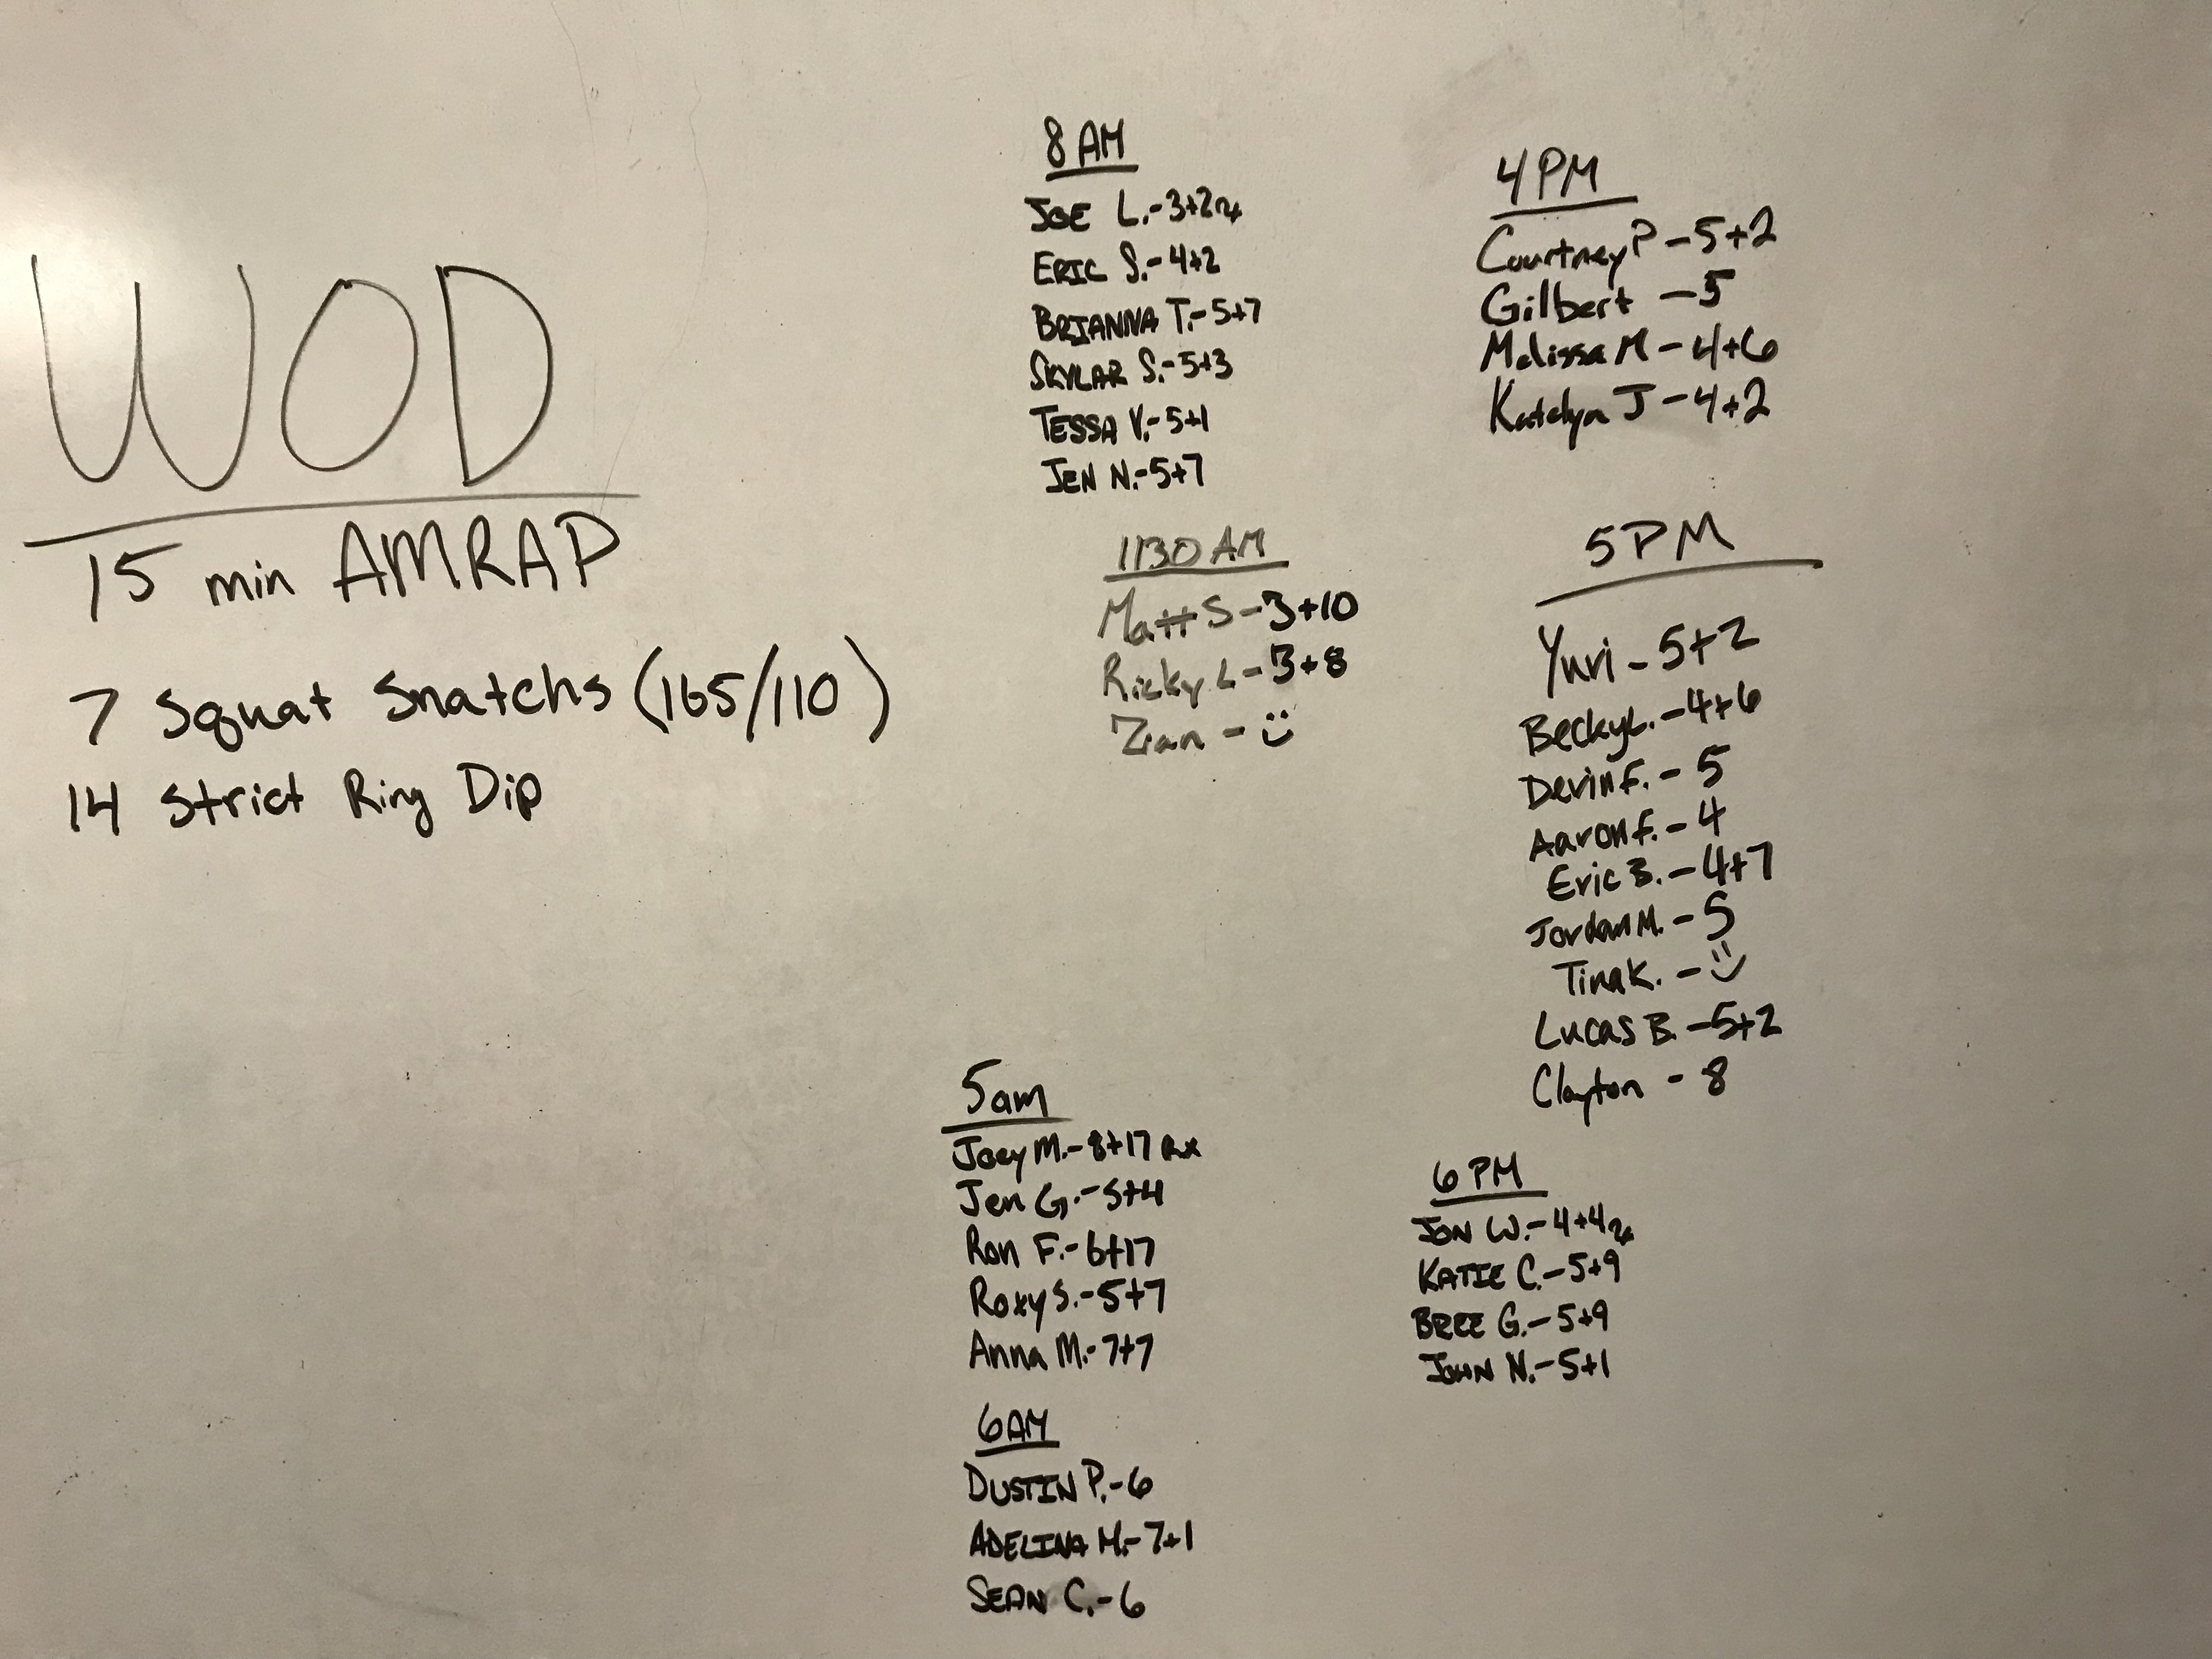 WOD
15 min AMRAP
7 Squat Snatchs (165/110)
14 Strict Ring Dip
8 AM
JOE L.-3+2 rx
ERIC S.-4+2
BRIANNA T.-5+7
SKYLAR S.-5+3
TESSA V.-5+1
JEN N.-5+7
1130 AM
Matt S-3+10
Ricky L-3+8
Zian - :)
5am
Joey M.-8+17 Rx
Jen G.-5+4
Ron F.-6+17
Roxy S.-5+7
Anna M.-7+7
6AM
DUSTIN P.-6
ADELINA M.-7+1
SEAN C.-6
4PM
Courtney P-5+2
Gilbert -5
Melissa M-4+6
Katelyn J-4+2
5PM
Yuri-5+2
Becky L.-4+6
Devin F.-5
Aaron F.-4
Eric B.-4+7
Jordan M.-5
Tina K.- :)
Lucas B.-5+2
Clayton - 8
6 PM
JON W.-4+4 rx
KATIE C.-5+9
BREE G.-5+9
JOHN N.-5+1